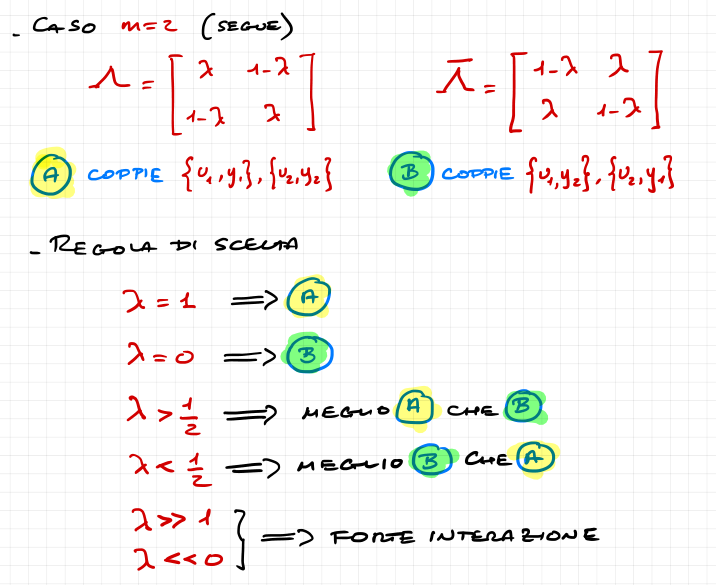 - CASO m=2 (SEGUE)
Λ = [λ 1-λ; 1-λ λ] Λ̄ = [1-λ λ; λ 1-λ]
A COPPIE {υ₁,y₁},{υ₂,y₂} B COPPIE {υ₁,y₂},{υ₂,y₁}
- REGOLA DI SCELTA
λ = 1 ⟹ A
λ = 0 ⟹ B
λ > 1/2 ⟹ MEGLIO A CHE B
λ < 1/2 ⟹ MEGLIO B CHE A
λ >> 1
λ << 0 } ⟹ FORTE INTERAZIONE